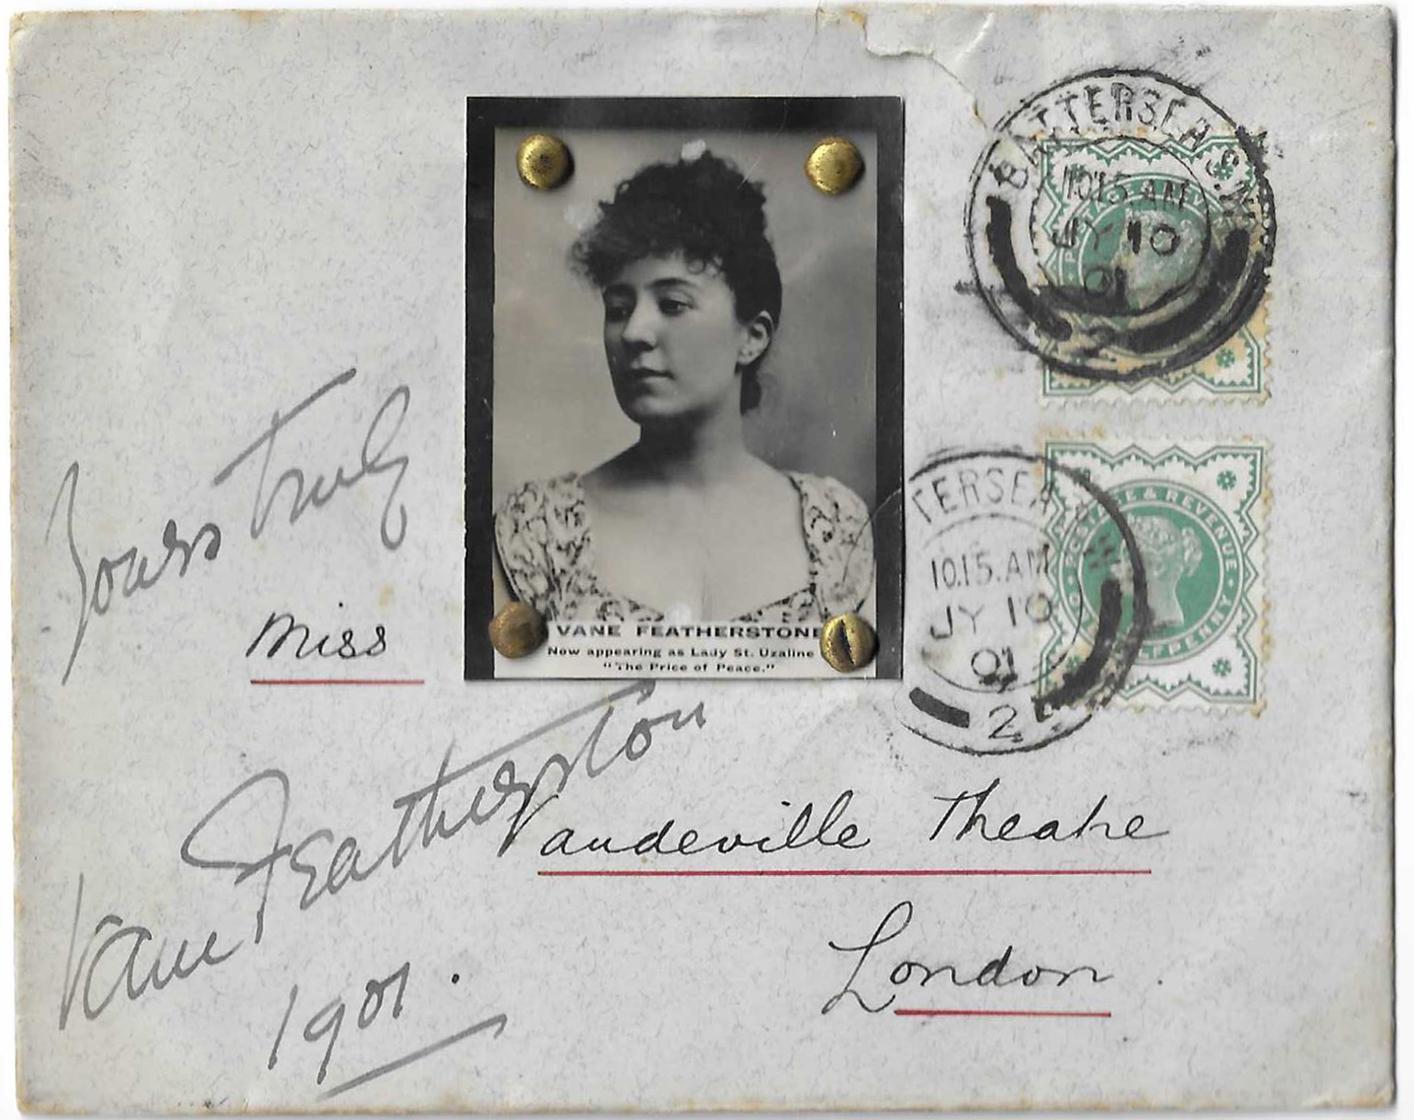 BATTERSEA S.W.
10.15 AM
JY 10
01
2
POSTAGE & REVENUE
TERSEA
10.15.AM
JY 10
01
2
POSTAGE & REVENUE
HALFPENNY
Yours truly
Miss
VANE FEATHERSTONE
Now appearing as Lady St. Uzaline
"The Price of Peace."
Vane Featherston
1901.
Vaudeville Theatre
London.